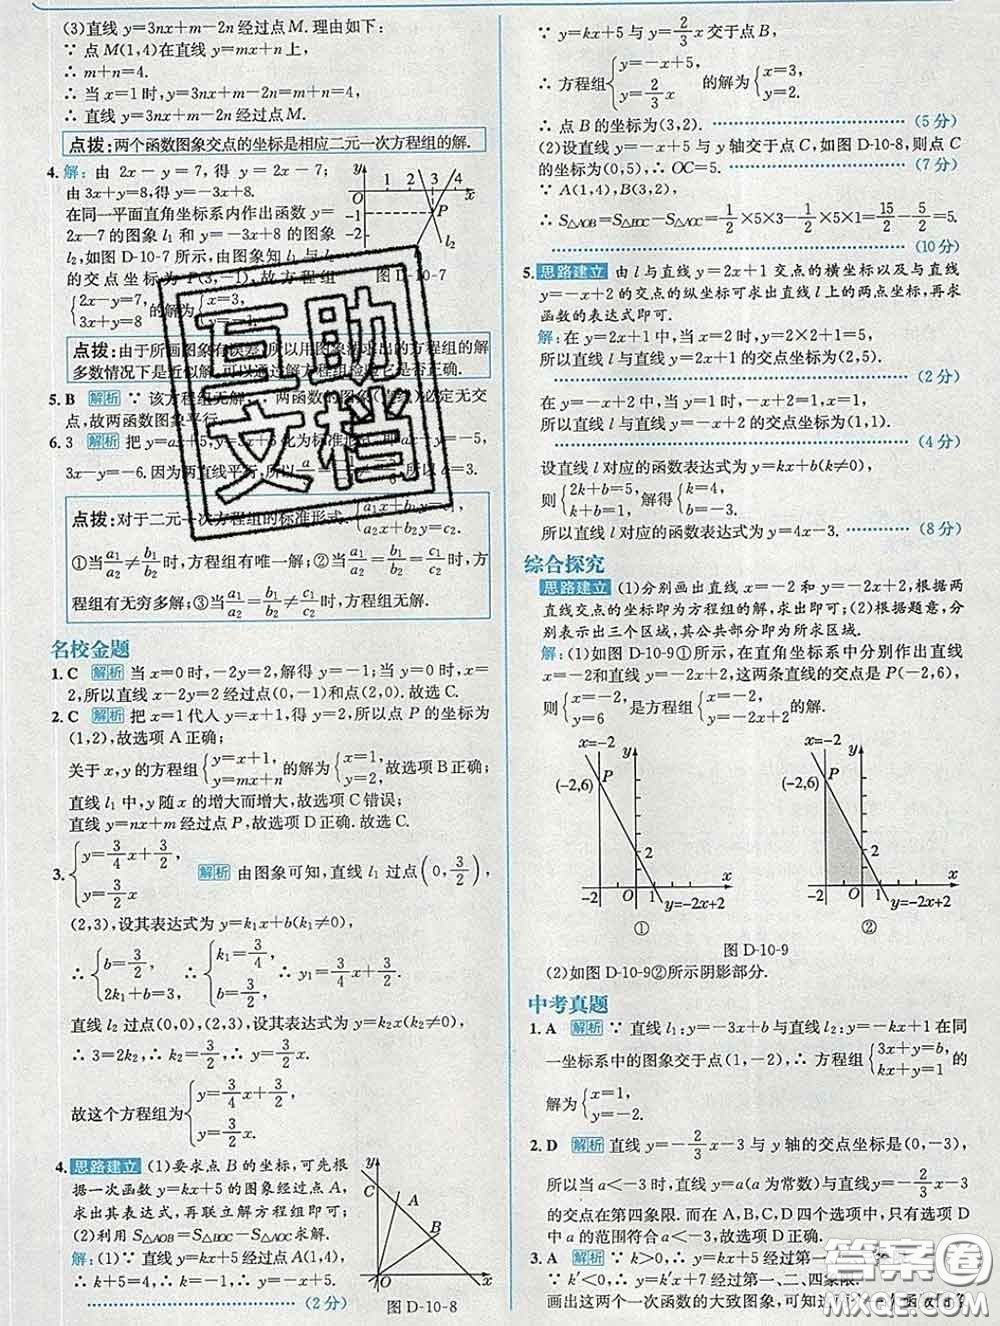 (3)直线 y=3nx+m-2n经过点M.理由如下:
∵ 点M(1,4)在直线 y=mx+n上,
∴ m+n=4.
∴ 当x=1时,y=3nx+m-2n=m+n=4,
∴ 直线 y=3nx+m-2n经过点M.
点拨:两个函数图象交点的坐标是相应二元一次方程组的解.
4. 解:由 2x-y=7,得 y=2x-7;
由 3x+y=8,得 y=-3x+8.
在同一平面直角坐标系内作出函数 y=
2x-7的图象 l₁ 和 y=-3x+8 的图象
l₂,如图 D-10-7 所示,由图象知 l₁与 l₂
的交点坐标为P(3,-1),故方程组
{2x-y=7, 3x+y=8 的解为{x=3,
1 2 3 4 y x O -1 -2 P l₂
图 D-10-7
点拨:由于所画图象有误差,所以用图象法求出的方程组的解
多数情况下是近似解,可以通过解方程组检验它是否正确.
5. B 解析 ∵ 该方程组无解,∴ 两函数的图象(直线)必定无交
点,故两函数图象平行.
6. 3 解析 把 y=ax+5,y=3x+6化为标准形式,即ax-y=-5,
3x-y=-6.因为两直线平行,所以 a=3.
点拨:对于二元一次方程组的标准形式{a₁x+b₁y=c₁, a₂x+b₂y=c₂.
①当a₁/a₂≠b₁/b₂时,方程组有唯一解;②当a₁/a₂=b₁/b₂=c₁/c₂时,方
程组有无穷多解;③当a₁/a₂=b₁/b₂≠c₁/c₂时,方程组无解.
名校金题
1. C 解析 当 x=0时,-2y=2,解得y=-1;当y=0时,x=
2,所以直线 x-2y=2 经过点(0,-1)和点(2,0).故选C.
2. C 解析 把x=1代人y=x+1,得 y=2,所以点 P 的坐标为
(1,2),故选项A正确;
关于x,y的方程组{y=x+1, y=mx+n的解为{x=1, y=2,故选项B正确;
直线 l₁ 中,y 随 x 的增大而增大,故选项C错误;
直线 y=nx+m 经过点P,故选项D正确.故选C.
3. {y=3/4x+3/2, y=3/2x 解析 由图象可知,直线 l₁ 过点(0,3/2),
(2,3),设其表达式为 y=k₁x+b(k₁≠0),
∴ {b=3/2, 2k₁+b=3, ∴ {k₁=3/4, b=3/2, ∴ y=3/4x+3/2.
直线 l₂ 过点(0,0),(2,3),设其表达式为 y=k₂x(k₂≠0),
∴ 3=2k₂,∴ k₂=3/2,∴ y=3/2x.
故这个方程组为{y=3/4x+3/2, y=3/2x.
4. 思路建立 (1)要求点 B 的坐标,可先根
据一次函数 y=kx+5的图象经过点 A,
求出其表达式,再联立解方程组即可;
(2)利用 S△AOB=S△BOC-S△AOC求解.
解:(1)∵ 直线 y=kx+5经过点A(1,4),
∴ k+5=4,∴ k=-1,∴ y=-x+5.
(2分)
y C A B O x
图 D-10-8
∵ y=kx+5 与 y=2/3x交于点B,
∴ 方程组{y=-x+5, y=2/3x 的解为{x=3, y=2.
∴ 点 B 的坐标为(3,2). (5分)
(2)设直线 y=-x+5 与 y轴交于点 C,如图 D-10-8,则点 C
的坐标为(0,5),∴ OC=5. (7分)
∵ A(1,4),B(3,2),
∴ S△AOB=S△BOC-S△AOC=1/2×5×3-1/2×5×1=15/2-5/2=5.
(10分)
5. 思路建立 由 l 与直线 y=2x+1 交点的横坐标以及与直线
y=-x+2 的交点的纵坐标可求出直线 l 上的两点坐标,再求
函数的表达式即可.
解:在 y=2x+1 中,当 x=2时,y=2×2+1=5,
所以直线 l 与直线 y=2x+1 的交点坐标为(2,5).
(2分)
在 y=-x+2 中,当 y=1时,-x+2=1,x=1,
所以直线 l 与直线 y=-x+2 的交点坐标为(1,1).
(4分)
设直线 l 对应的函数表达式为 y=kx+b(k≠0),
则{2k+b=5, k+b=1,解得{k=4, b=-3.
所以直线 l 对应的函数表达式为 y=4x-3. (8分)
综合探究
思路建立 (1)分别画出直线 x=-2 和 y=-2x+2,根据两
直线交点的坐标即为方程组的解,求出即可;(2)根据题意,分
别表示出三个区域,其公共部分即为所求区域.
解:(1)如图 D-10-9①所示,在直角坐标系中分别作出直线
x=-2和直线 y=-2x+2,这两条直线的交点是 P(-2,6),
则{x=-2, y=6 是方程组{x=-2, y=-2x+2的解.
x=-2 y (-2,6) P 2 x -2 O 1 y=-2x+2
①
x=-2 y (-2,6) P 2 x -2 O 1 y=-2x+2
②
图 D-10-9
(2)如图 D-10-9②所示阴影部分.
中考真题
1. A 解析 ∵ 直线 l₁:y=-3x+b 与直线 l₂:y=-kx+1 在同
一坐标系中的图象交于点(1,-2),∴ 方程组{3x+y=b, kx+y=1 的
解为{x=1, y=-2.
2. D 解析 直线 y=-2/3x-3 与 y 轴的交点坐标是(0,-3),
所以当 a<-3 时,直线 y=a(a 为常数)与直线 y=-2/3x-3
的交点在第四象限.而在A,B,C,D四个选项中,只有选项D
中 a 的范围符合 a<-3,故选D.
3. A 解析 ∵ k>0,∴ y=kx+k 经过第一
∵ k′<0,∴ y=k′x+7 经过第一、二、四象限.
画出这两个一次函数的大致图象,可知这
互助文档
答案圈
MXQE.COM